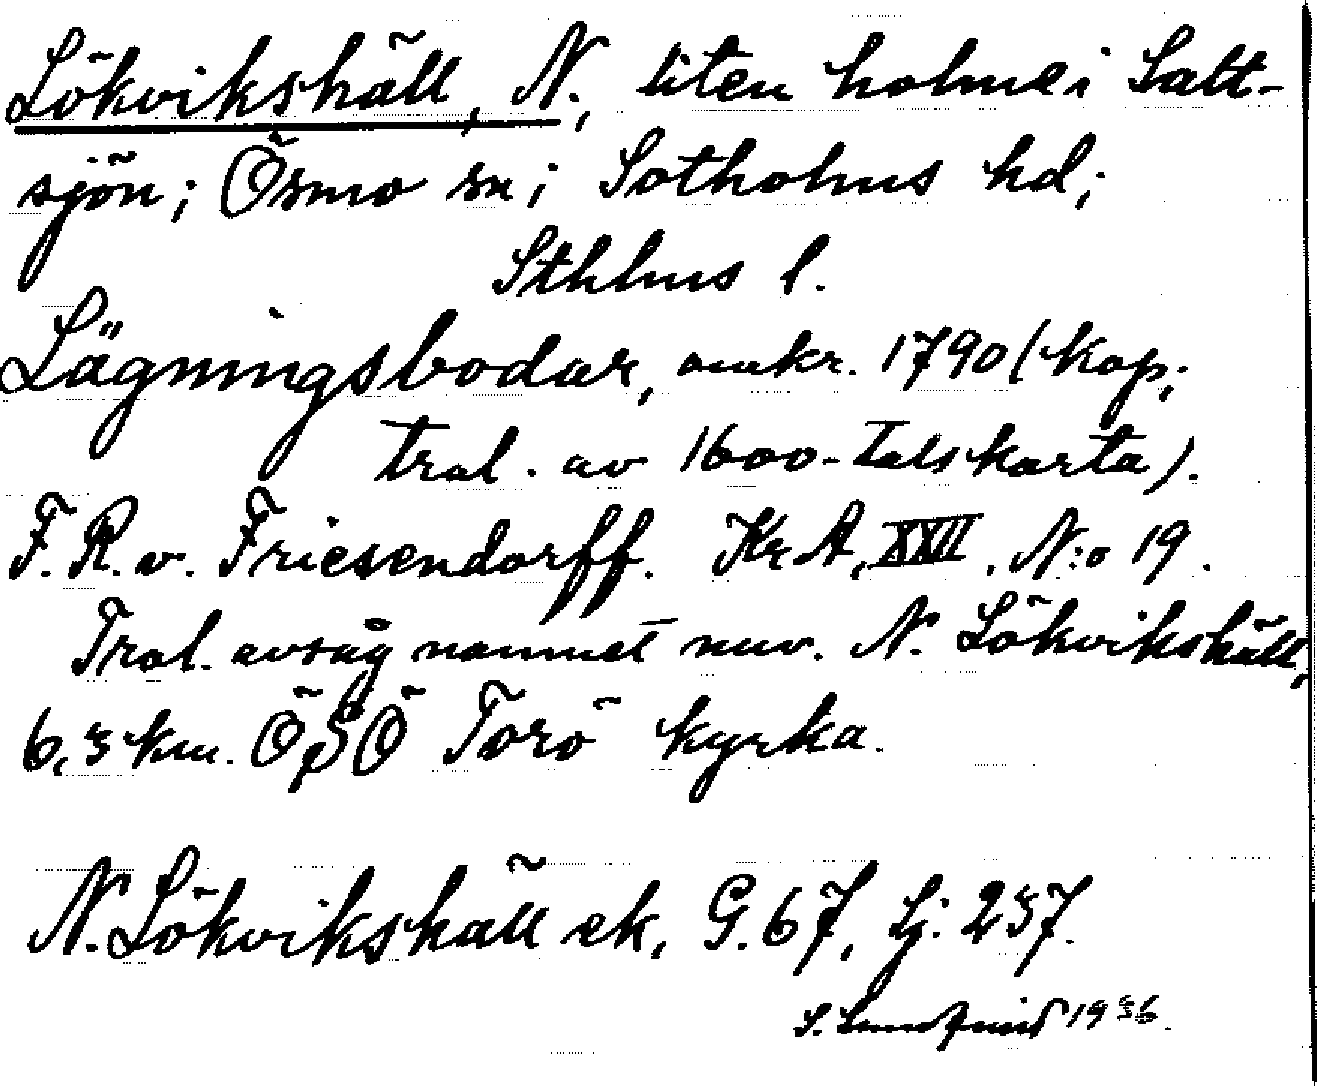 Lökvikshäll, N., liten holme i Salt-
sjön; Ösmo sn; Sotholms hd;
Sthlms l.
Lägningsbodar, omkr. 1790 (Kop.
tral. av 1600-talskarta).
F. R. v. Friesendorff. Kr A, XXII, N:o 19.
Tral. avsåg namnet nuv. N. Lökvikshäll,
6,5 km. ÖSÖ Torö kyrka.
N. Lökvikshäll ek, G. 67, Lj: 257.
S. 1936.